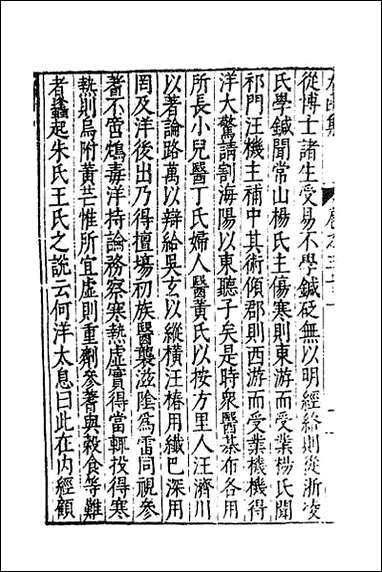 從博士諸生受易不學鍼砭無以明經絡則從浙凌
氏學鍼聞常山楊氏主傷寒則東游而受業楊氏聞
祁門汪機主補中其術傾郡則西游而受業機機得
洋大驚請割海陽以東聽子矣是時衆醫棊布各用
所長小兒醫丁氏婦人醫黃氏以按方里人汪濟川
以著論路萬以辯給吳玄以縱橫汪椿用纖巴深用
罔及洋後出乃得擅場初族醫襲滋陰為雷同視參
耆不啻鴆毒洋持論務察寒熱虛實得當輒投得寒
熱則烏附黃芩惟所宜虛則重劑參耆與穀食等難
者蠭起朱氏王氏之說云何洋太息曰此在內經顧